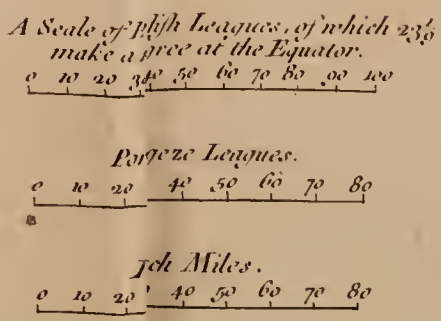 A Scale of plish Leagues, of which 23⅑
make a pree at the Equator.
0 10 20 30 40 50 60 70 80 90 100
Porgeze Leagues.
0 10 20 40 50 60 70 80
Ich Miles.
0 10 20 40 50 60 70 80